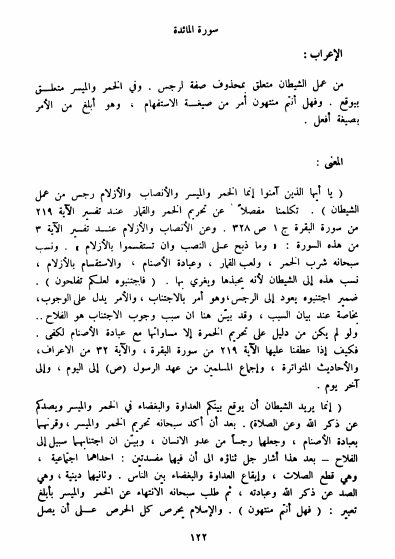 سورة المائدة
الإعراب :
من عمل الشيطان متعلق بمحذوف صفة لرجس . وفي الخمر والميسر متعلق
بيوقع . وفهل أنتم منتهون أمر من صيغة الاستفهام ، وهو أبلغ من الأمر
بصيغة أفعل .
المعنى :
( يا أيها الذين آمنوا إنما الخمر والميسر والأنصاب والأزلام رجس من عمل
الشيطان ) . تكلمنا مفصلاً عن تحريم الخمر والقمار عند تفسير الآية ٢١٩
من سورة البقرة ج ١ ص ٣٢٨ . وعن الأنصاب والأزلام عند تفسير الآية ٣
من هذه السورة : « وما ذبح على النصب وان تستقسموا بالأزلام » . ونسب
سبحانه شرب الخمر ، ولعب القمار ، وعبادة الأصنام ، والاستقسام بالأزلام ،
نسب هذه إلى الشيطان لأنه يحبذها ويغري بها . ( فاجتنبوه لعلكم تفلحون ) .
ضمير اجتنبوه يعود إلى الرجس ، وهو أمر بالاجتناب ، والأمر يدل على الوجوب ،
بخاصة عند بيان السبب ، وقد بيّن هنا ان سبب وجوب الاجتناب هو الفلاح ..
ولو لم يكن من دليل على تحريم الخمرة إلا مساواتها مع عبادة الأصنام لكفى .
فكيف إذا عطفنا عليها الآية ٢١٩ من سورة البقرة ، والآية ٣٢ من الاعراف ،
والأحاديث المتواترة ، وإجماع المسلمين من عهد الرسول (ص) إلى اليوم ، وإلى
آخر يوم .
( إنما يريد الشيطان أن يوقع بينكم العداوة والبغضاء في الخمر والميسر ويصدكم
عن ذكر الله وعن الصلاة) . بعد أن أكد سبحانه تحريم الخمر والميسر ، وقرنهما
بعبادة الأصنام ، وجعلها رجساً من عدو الانسان ، وبيّن ان اجتنابهما سبيل إلى
الفلاح – بعد هذا أشار جل ثناؤه الى أن فيها مفسدتين : احداهما اجتماعية ،
وهي قطع الصلات ، وإيقاع العداوة والبغضاء بين الناس . وثانيها دينية ، وهي
الصد عن ذكر الله وعبادته ، ثم طلب سبحانه الانتهاء عن الخمر والميسر بأبلغ
تعبير : ( فهل أنتم منتهون ) . والإسلام يحرص كل الحرص على أن يصل
١٢٢